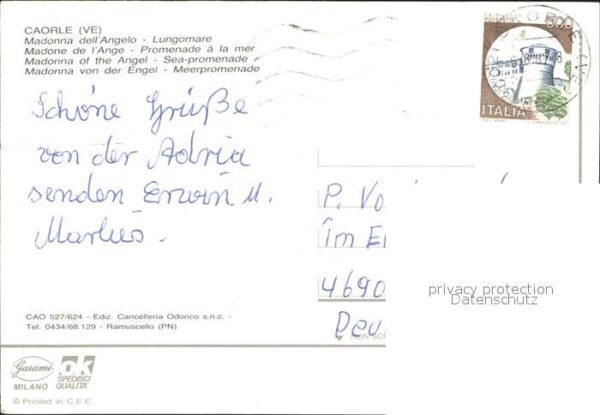 CAORLE (VE)
Madonna dell'Angelo - Lungomare
Madone de l'Ange - Promenade à la mer
Madonna of the Angel - Sea-promenade
Madonna von der Engel - Meerpromenade
500
ITALIA
Schöne Grüße
von der Adria
senden Erwin u.
P. Vo
im E
4690
Deu
privacy protection
Datenschutz
CAO 527/624 - Ediz. Cancelleria Odorico s.n.c. -
Tel. 0434/68.129 - Ramuscello (PN)
NON SC
Garami
MILANO
OK
SPEDISCI
QUALITA'
© Printed in C.E.E.